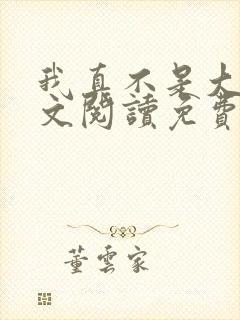 我真不是大
文閱讀免費
董雲家